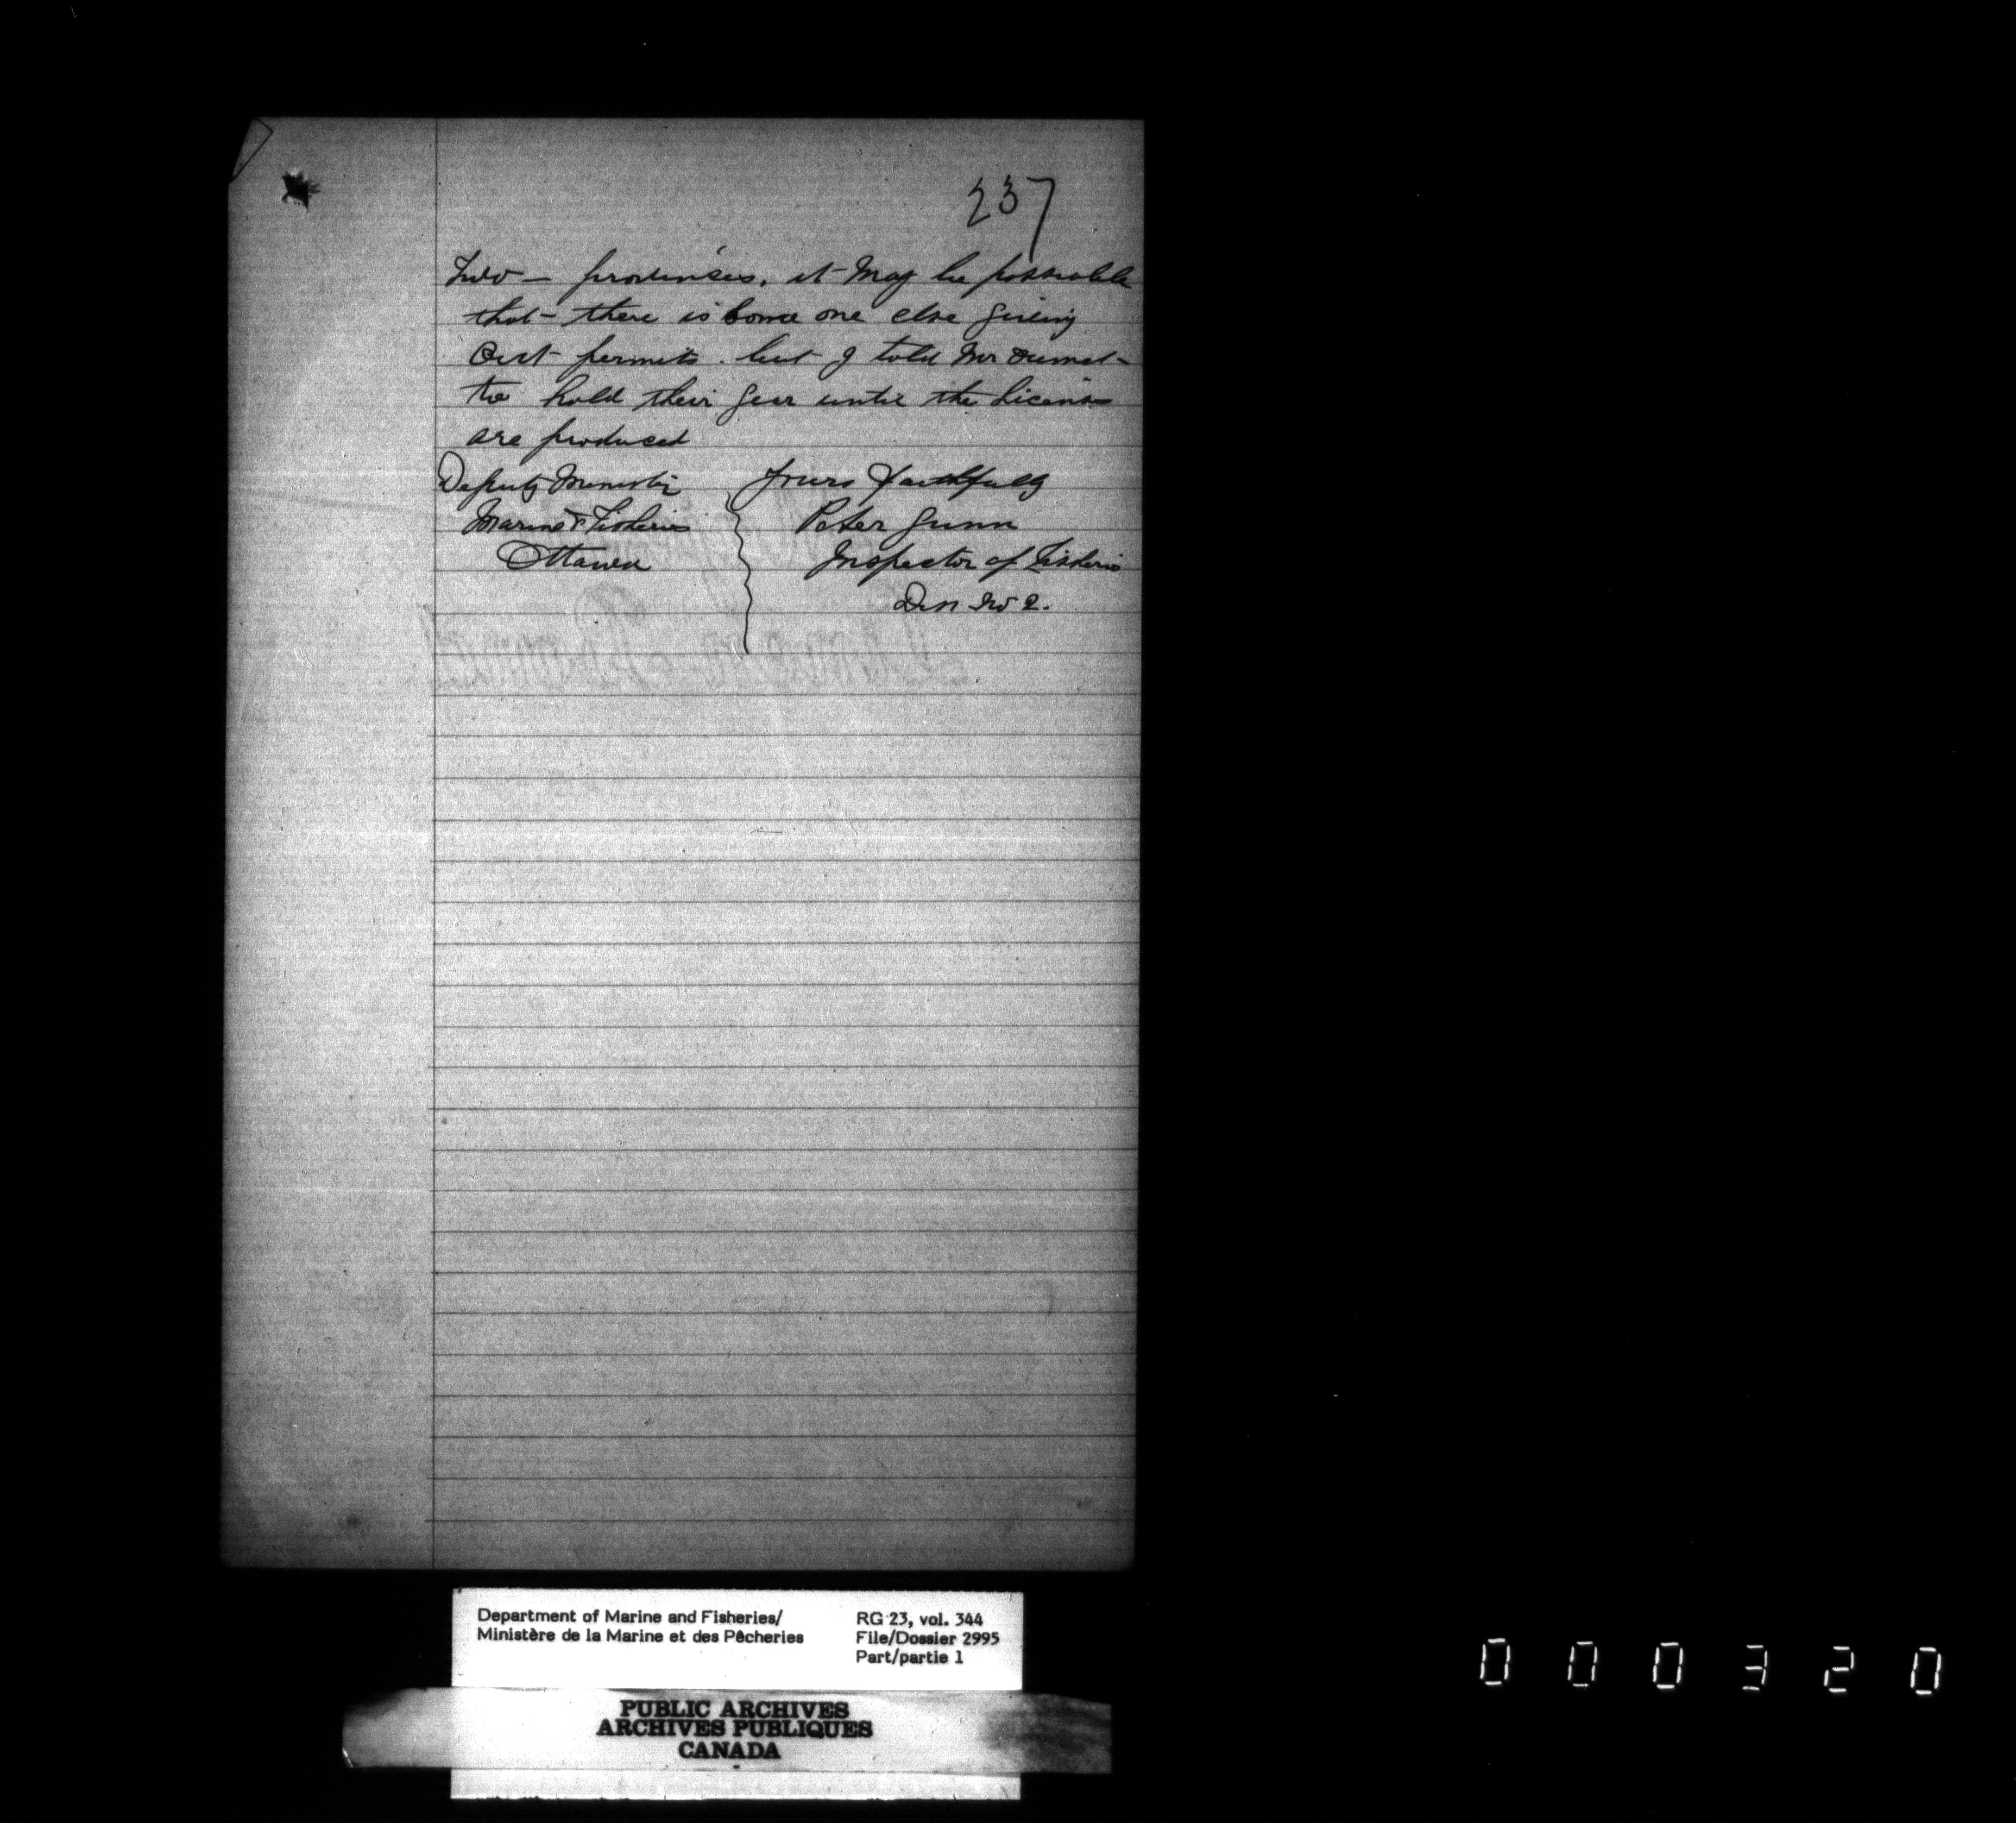 237
Two - provinses. it May be possiable
that - there is Some one else giving
Out permits. but I told Mr
to hold their gear until the Licenses
are produced
Deputy Minister
Marine & Fisheries
Ottawa
Yours Faithfully
Peter Gunn
Inspector of Fisheries
No 2.
Department of Marine and Fisheries/
Ministère de la Marine et des Pêcheries
RG 23, vol. 344
File/Dossier 2995
Part/partie 1
PUBLIC ARCHIVES
ARCHIVES PUBLIQUES
CANADA
000320